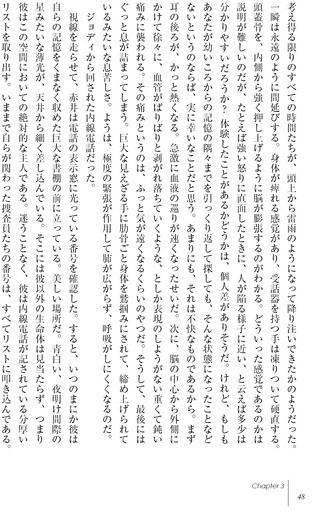 考え得る限りのすべての時間たちが、頭上から雷雨のようになって降り注いできたかのようだった。
一瞬は永遠のように間延びする。身体が痺れる感覚があり、受話器を持つ手は凍りついて硬直する。
頭蓋骨を、内側から強く押し上げるように脳が膨張するのがわかる。どういった感覚であるのかは
説明が難しいのだが、たとえば強い怒りに直面したときに、人が陥る様子に近い、と云えば多少は
分かりやすいだろうか？体験したことがあるかどうかは、個人差がありそうだ。けれど、もしも
あなたが幼いころからの記憶の隅々までを引っくり返して探しても、そんな状態になったことなど
ないというのならば、実に幸いなことだと思う。あまりにも、それは不快なものであるから。まず
耳の後ろが、かっと熱くなる。急激に血液の巡りが速くなったせいだ。次に、脳の中心から外側に
かけて徐々に、血管がばりばりと剥がれ落ちていくような、としか表現のしようがない重くて鈍い
痛みに襲われる。その痛みというのは、ふっと気が遠くなるくらいのやつだ。そうして、最後には
ぐっと息が詰まってしまう。巨大な見えざる手に肋骨ごと身体を鷲掴みにされて、締め上げられて
いるみたいな息苦しさ。ようは、極度の緊張が作用して肺が広がらず、呼吸がしにくくなるのだ。
ジョディから回された内線電話だった。
視線を走らせて、赤井は電話の表示窓に光っている番号を確認した。すると、いつのまにか彼は
自らの記憶くまなく収めた巨大な書棚の前に立っている。美しい場所だ。青白い、夜明け間際の
星みたいな薄光が、天井から細く差し込んでいる。そこには彼以外の生命体は見当たらず、つまり
彼はこの空間においての絶対的な主人である。迷うことなく、彼は内線電話が記されている分厚い
リストを取り出す。いままで自らが関わった捜査員たちの番号は、すべてリストに叩き込んである。
Chapter 3
48